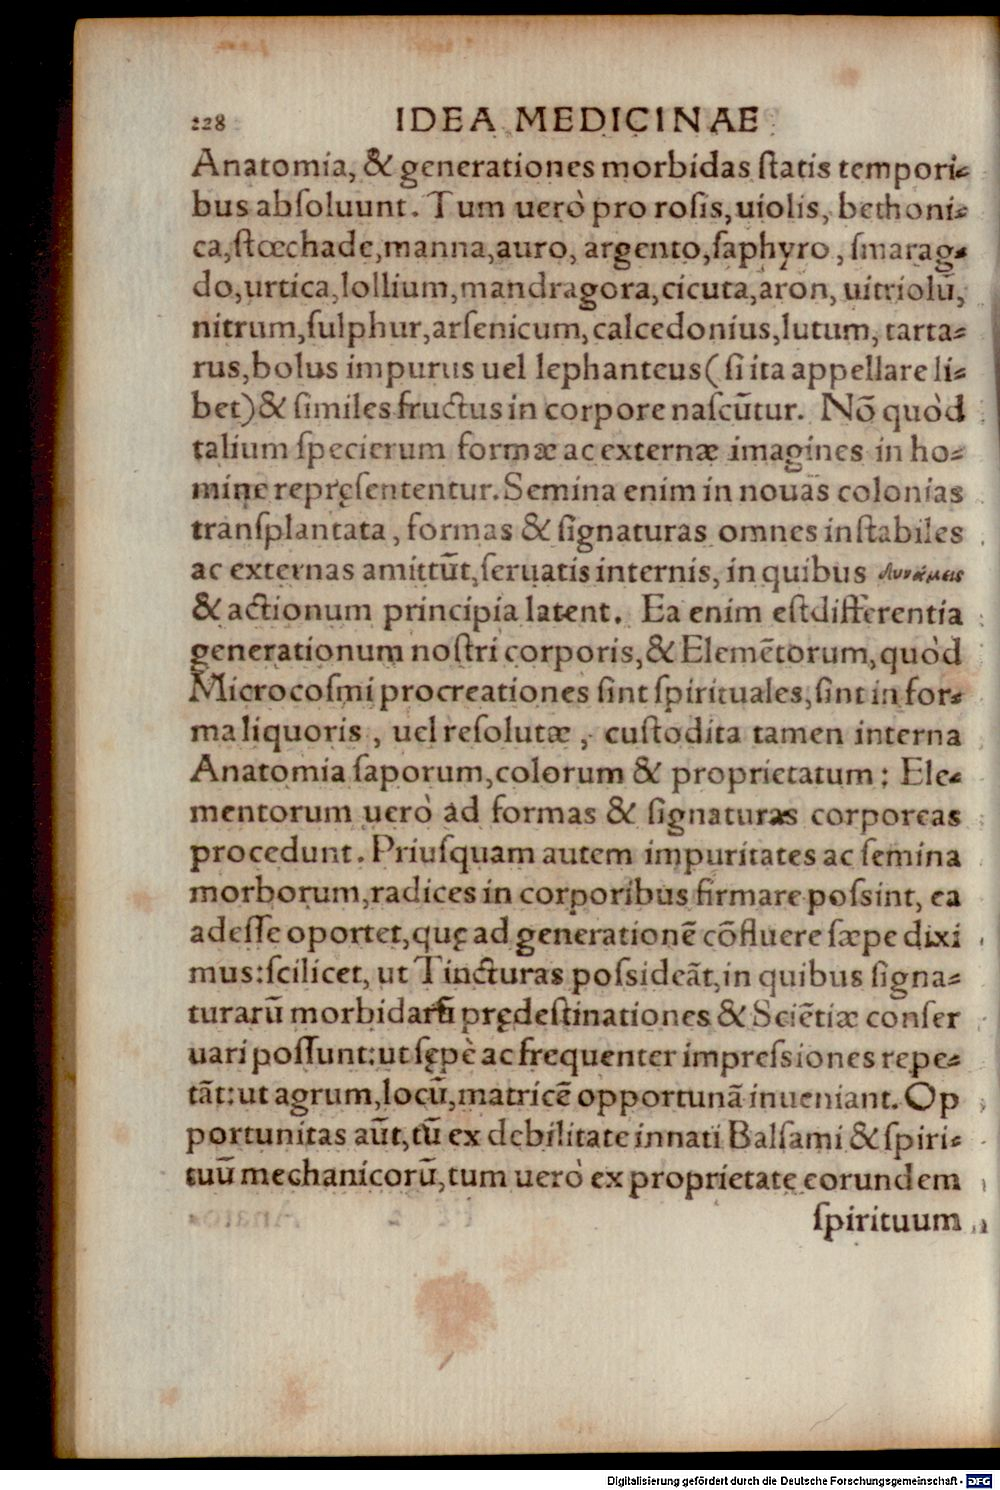 228 IDEA MEDICINAE
Anatomia, & generationes morbidas ſtatis tempori-
bus abſoluunt. Tum uerò pro roſis, uiolis, bethoni-
ca, ſtœchade, manna, auro, argento, ſaphyro, ſmarag-
do, urtica, lollium, mandragora, cicuta, aron, uitriolū,
nitrum, ſulphur, arſenicum, calcedonius, lutum, tarta-
rus, bolus impurus uel lephanteus (ſi ita appellare li-
bet) & ſimiles fructus in corpore naſcūtur. Nō quòd
talium ſpecierum formæ ac externæ imagines in ho-
mine repręſententur. Semina enim in nouas colonias
tranſplantata, formas & ſignaturas omnes inſtabiles
ac externas amittūt, ſeruatis internis, in quibus δυνάμεις
& actionum principia latent. Ea enim eſt differentia
generationum noſtri corporis, & Elemētorum, quòd
Microcoſmi procreationes ſint ſpirituales, ſint in for-
ma liquoris, uel reſolutæ, cuſtodita tamen interna
Anatomia ſaporum, colorum & proprietatum: Ele-
mentorum uerò ad formas & ſignaturas corporeas
procedunt. Priuſquam autem impuritates ac ſemina
morborum, radices in corporibus firmare poſsint, ea
adeſſe oportet, quę ad generationē cōfluere ſæpe dixi
mus: ſcilicet, ut Tincturas poſsideāt, in quibus ſigna-
turarū morbidarū prędeſtinationes & Sciētiæ conſer
uari poſſunt: ut ſępè ac frequenter impreſsiones repe-
tāt: ut agrum, locū, matricē opportunā inueniant. Op
portunitas aūt, tū ex debilitate innati Balſami & ſpiri-
tuū mechanicorū, tum uerò ex proprietate eorundem
ſpirituum
Digitalisierung gefördert durch die Deutsche Forschungsgemeinschaft - DFG